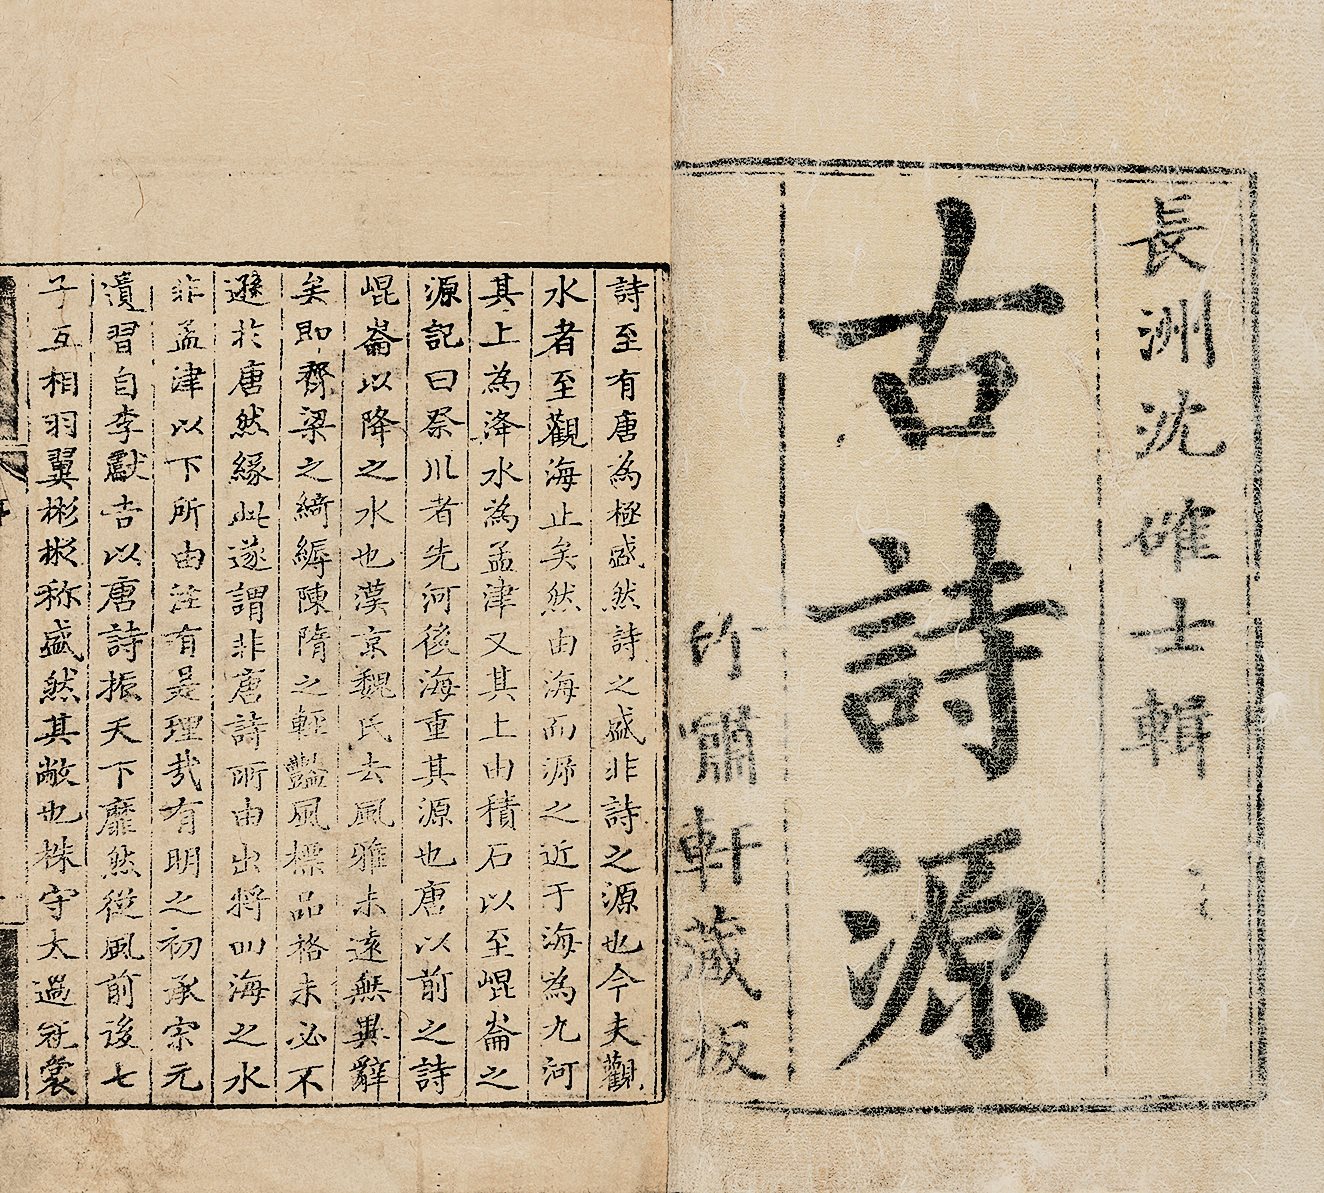 長洲沈確士輯
古詩源
竹嘯軒藏板
詩至有唐為極盛然詩之盛非詩之源也今夫觀
水者至觀海止矣然由海而溯之近于海為九河
其上為洚水為孟津又其上由積石以至崐崙之
源記曰祭川者先河後海重其源也唐以前之詩
崐崙以降之水也漢京魏氏去風雅未遠無異辭
矣即齊梁之綺縟陳隋之輕豔風標品格未必不
遜於唐然緣此遂謂非唐詩所由出將叫海之水
非孟津以下所由注有是理哉有明之初承宋元
遺習自李獻吉以唐詩振天下靡然從風前後七
子互相羽翼彬彬称盛然其敝也株守太過冠裳